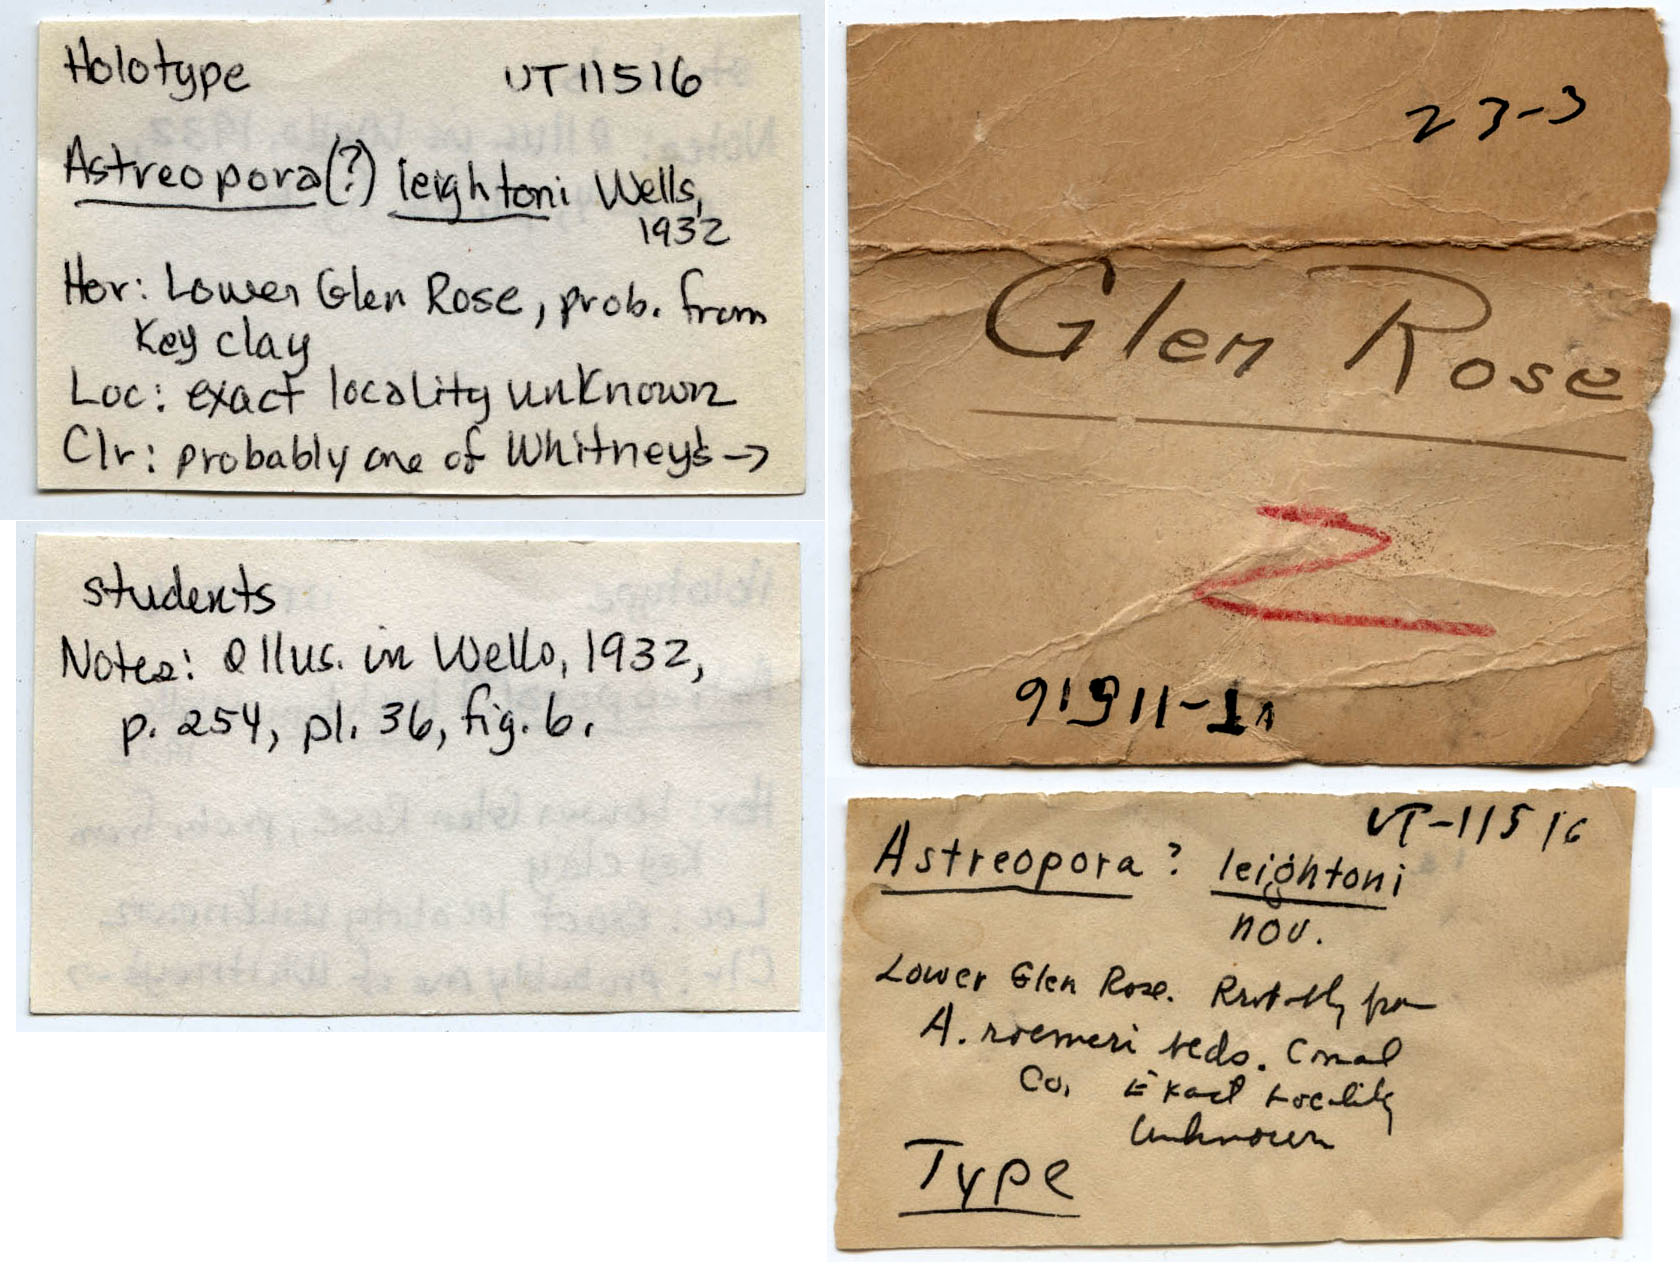 Holotype UT11516
Astreopora(?) leightoni Wells,
1932
Hor: Lower Glen Rose, prob. from
Key clay
Loc: exact locality unknown
Clr: probably one of Whitney's →
students
Notes: Illus. in Wells, 1932,
p. 254, pl. 36, fig. 6.
23-3
Glen Rose
2
UT-11516
Astreopora ? leightoni
nov.
Lower Glen Rose. Probably from
A. roemeri beds. Comal
Co. Exact Locality
Unknown
Type